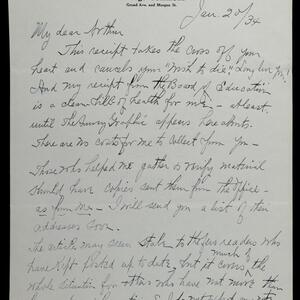 Grand Ave. and Morgan St.
Jan. 20/34
My dear Arthur
This receipt takes the cross off your
heart and cancels your "wish to die"
And my receipt from the Board of Education
is a clean bill of health for me - at least
until the Survey Graphic appears hereabouts.
There are no costs for me to collect from you -
Those who helped me gather & verify material
should have copies sent them from the office -
as from me. I will send you a list of their
addresses soon.
The article may seem stale to those readers who
have kept posted up to date, but it covers much of the
whole situation for others who have not more than